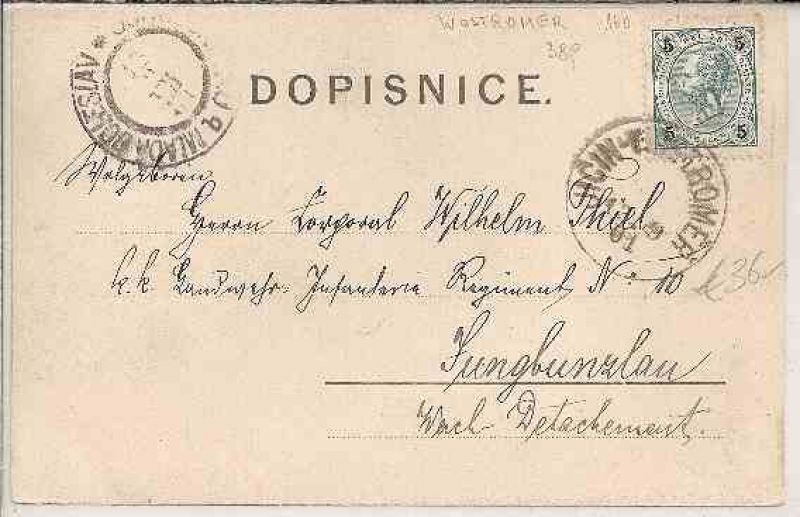 WOSTROMER 160
389
DOPISNICE.
5 5
5 5
MLADÁ BOLESLAV *
JIČIN-OSTROMĚŘ
Wolgeboren
Herrn Corporal Wilhelm Thiel
k. k. Landwehr-Infanterie Regiment No 10
€36-
Jungbunzlau
Wach-Detachement.